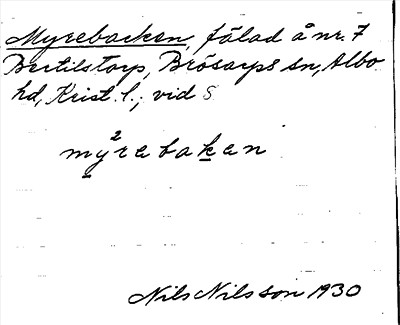 Myrebacken, fälad å nr. 7
Bertilstorp, Brösarps sn, Albo
hd, Krist. l.; vid S
2
myrebaken
Nils Nilsson 1930